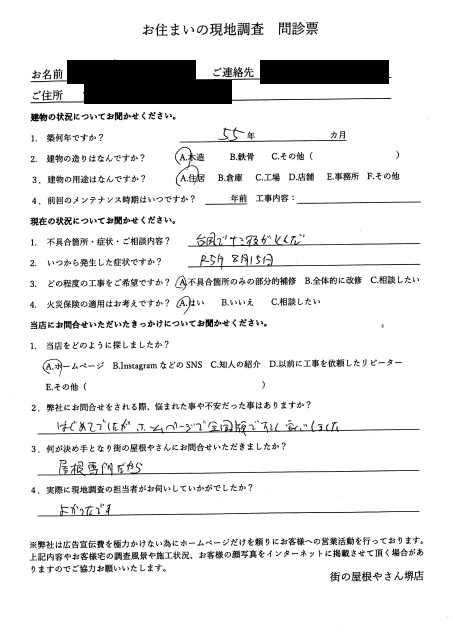 お住まいの現地調査 問診票
お名前 ご連絡先
ご住所
建物の状況についてお聞かせください。
1. 築何年ですか? 55年 カ月
2. 建物の造りはなんですか? A.木造 B.鉄骨 C.その他( )
3. 建物の用途はなんですか? A.住居 B.倉庫 C.工場 D.店舗 E.事務所 F.その他
4. 前回のメンテナンス時期はいつですか? 年前 工事内容:
現在の状況についてお聞かせください。
1. 不具合箇所・症状・ご相談内容? 台風で
2. いつから発生した症状ですか? R5年 8月15日
3. どの程度の工事をご希望ですか? A.不具合箇所のみの部分的補修 B.全体的に改修 C.相談したい
4. 火災保険の適用はお考えですか? A.はい B.いいえ C.相談したい
当店にお問合せいただいたきっかけについてお聞かせください。
1. 当店をどのように探しましたか?
A.ホームページ B.InstagramなどのSNS C.知人の紹介 D.以前に工事を依頼したリピーター
E.その他( )
2. 弊社にお問合せをされる際、悩まれた事や不安だった事はありますか?
はじめてでしたが ホームページで全国版で 安心しました
3. 何が決め手となり街の屋根やさんにお問合せいただきましたか?
屋根専門だから
4. 実際に現地調査の担当者がお伺いしていかがでしたか?
よかったです
※弊社は広告宣伝費を極力かけない為にホームページだけを頼りにお客様への営業活動を行っております。
上記内容やお客様宅の調査風景や施工状況、お客様の顔写真をインターネットに掲載させて頂く場合があ
りますのでご協力お願いいたします。
街の屋根やさん堺店